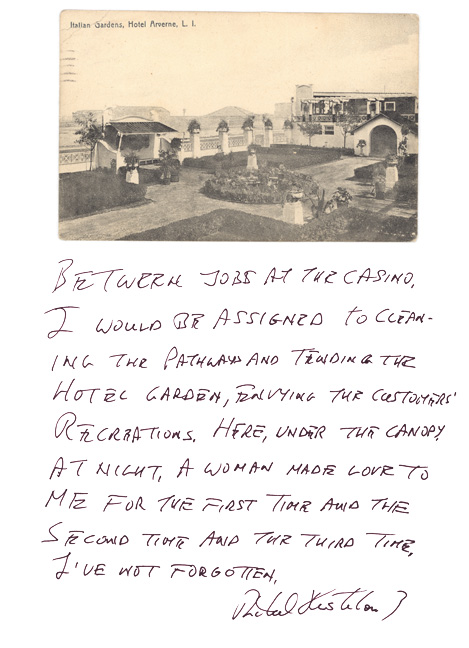 Italian Gardens, Hotel Arverne, L. I.
BETWEEN JOBS AT THE CASINO,
I WOULD BE ASSIGNED TO CLEAN-
ING THE PATHWAYS AND TENDING THE
HOTEL GARDEN, ENVYING THE CUSTOMERS'
RECREATIONS. HERE, UNDER THE CANOPY
AT NIGHT, A WOMAN MADE LOVE TO
ME FOR THE FIRST TIME AND THE
SECOND TIME AND THE THIRD TIME,
I'VE NOT FORGOTTEN.